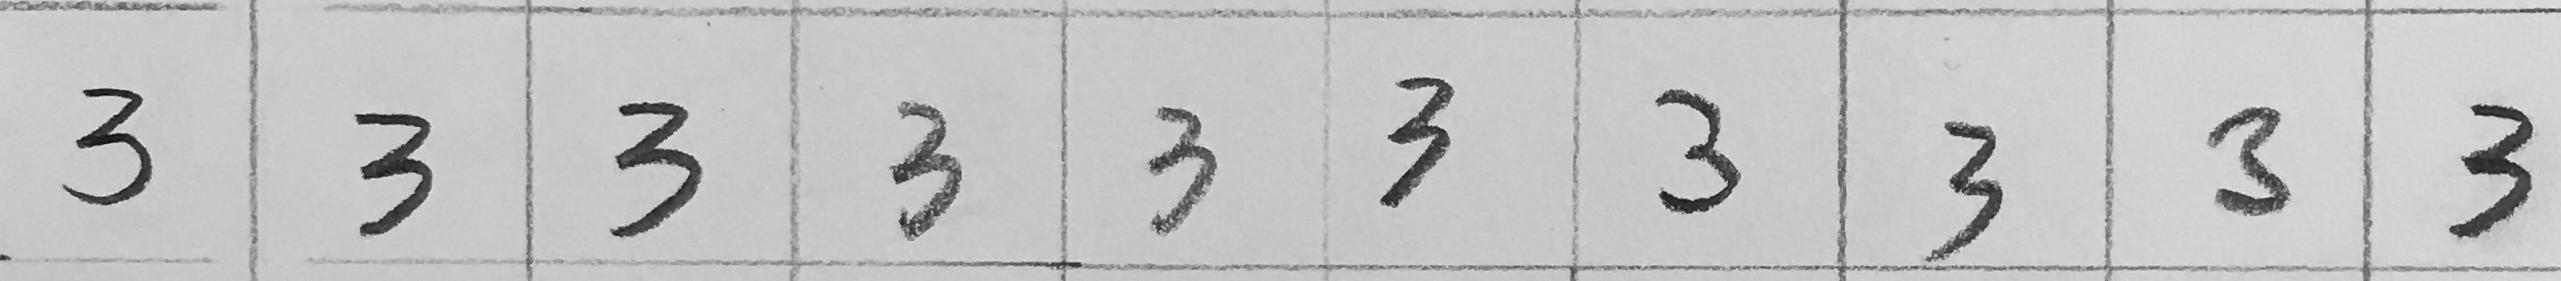 3 3 3 3 3 3 3 3 3 3